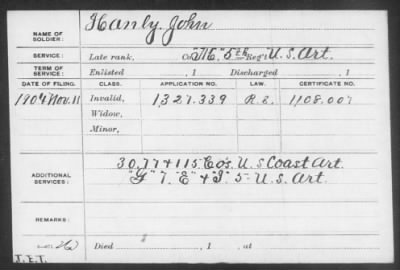 Hanly, John
NAME OF SOLDIER:
SERVICE: Late rank, Co. "H" 5th Reg't U.S. Art.
TERM OF SERVICE: Enlisted , 1 Discharged , 1
DATE OF FILING. CLASS. APPLICATION NO. LAW. CERTIFICATE NO.
1904 Nov. 11 Invalid, 1,327.339 1,108.007
Widow,
Minor,
30, 77 & 115 Co's. U.S. Coast Art.
ADDITIONAL SERVICES: 7. "E" & 5 U.S. Art.
REMARKS:
Died , 1 , at
J.E.T.